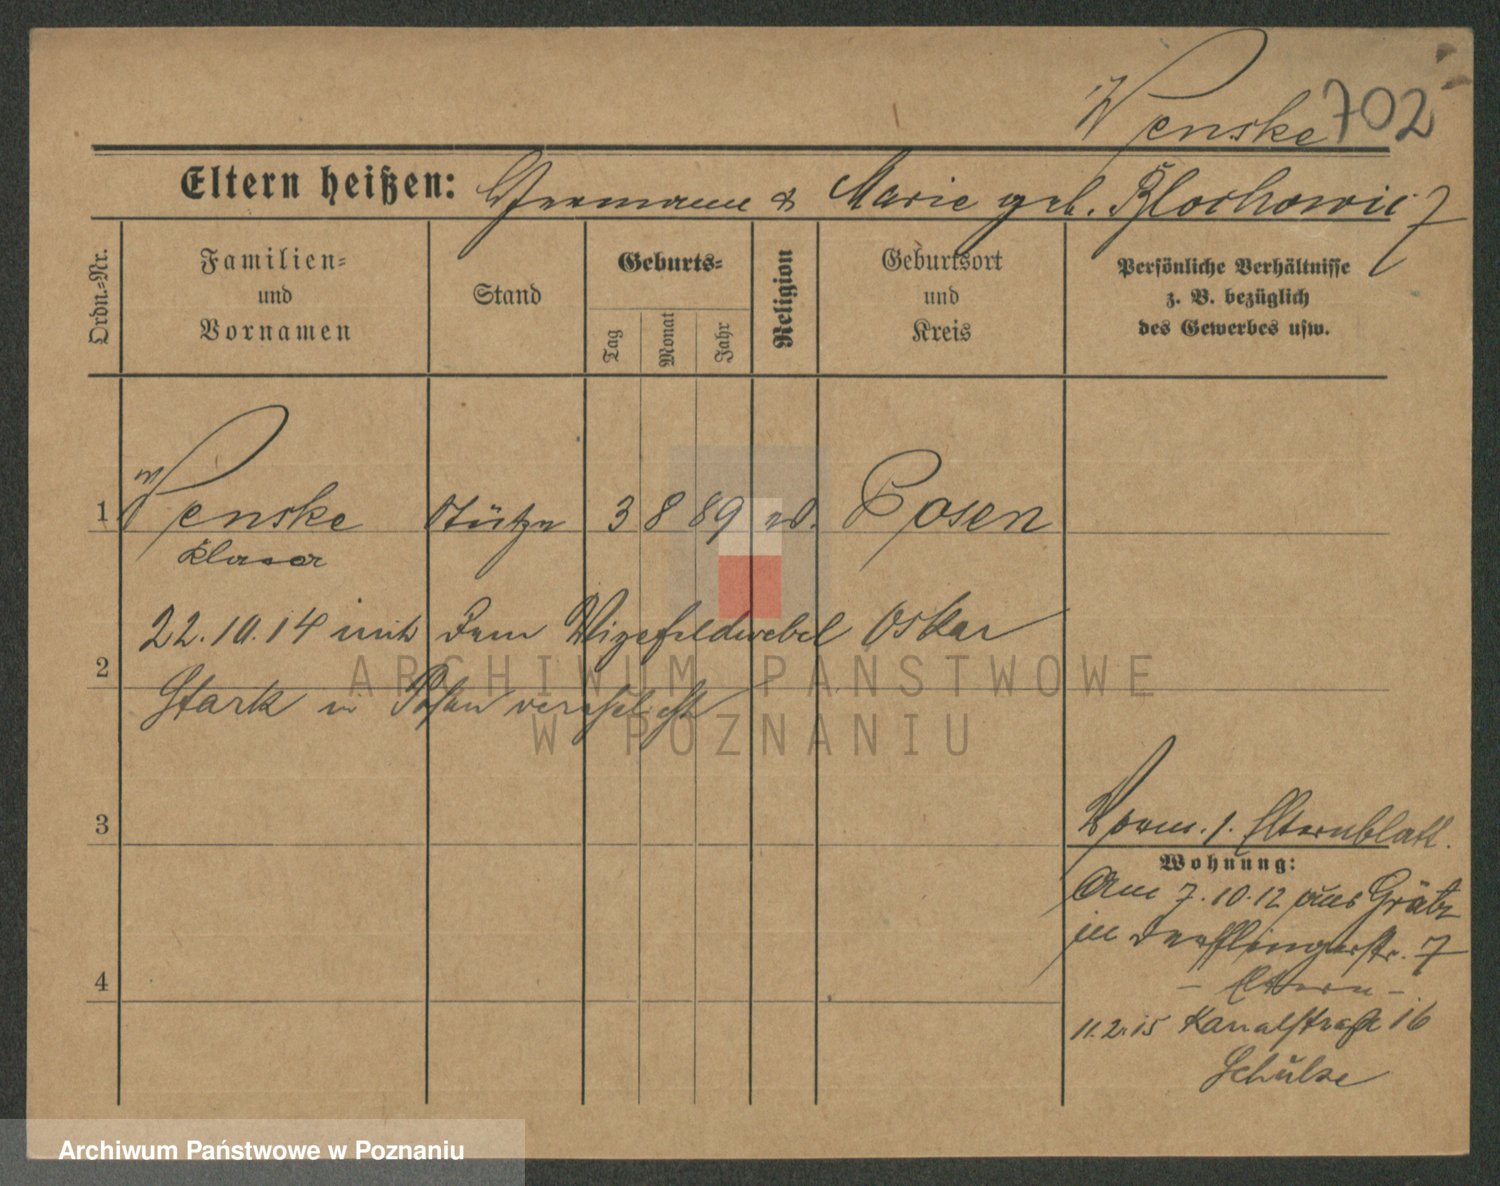 Wenske 702
Eltern heißen: Hermann & Marie geb. Blochowicz
Ordn.=Nr.
Familien=
und
Vornamen
Stand
Geburts=
Tag
Monat
Jahr
Religion
Geburtsort
und
Kreis
Persönliche Verhältnisse
z. B. bezüglich
des Gewerbes usw.
1 Wenske Stütze 3 8 89 Posen
Klara
22.10.14 mit dem Vizefeldwebel Oskar
2
Stark in Posen verehelicht
3
Vorm. 1. Elternblatt.
Wohnung:
Am 7.10.12 aus Grätz
in Derfflingerstr. 7
- Eltern -
4
11.2.15 Kanalstraße 16
Schulze
ARCHIWUM PAŃSTWOWE
W POZNANIU
Archiwum Państwowe w Poznaniu